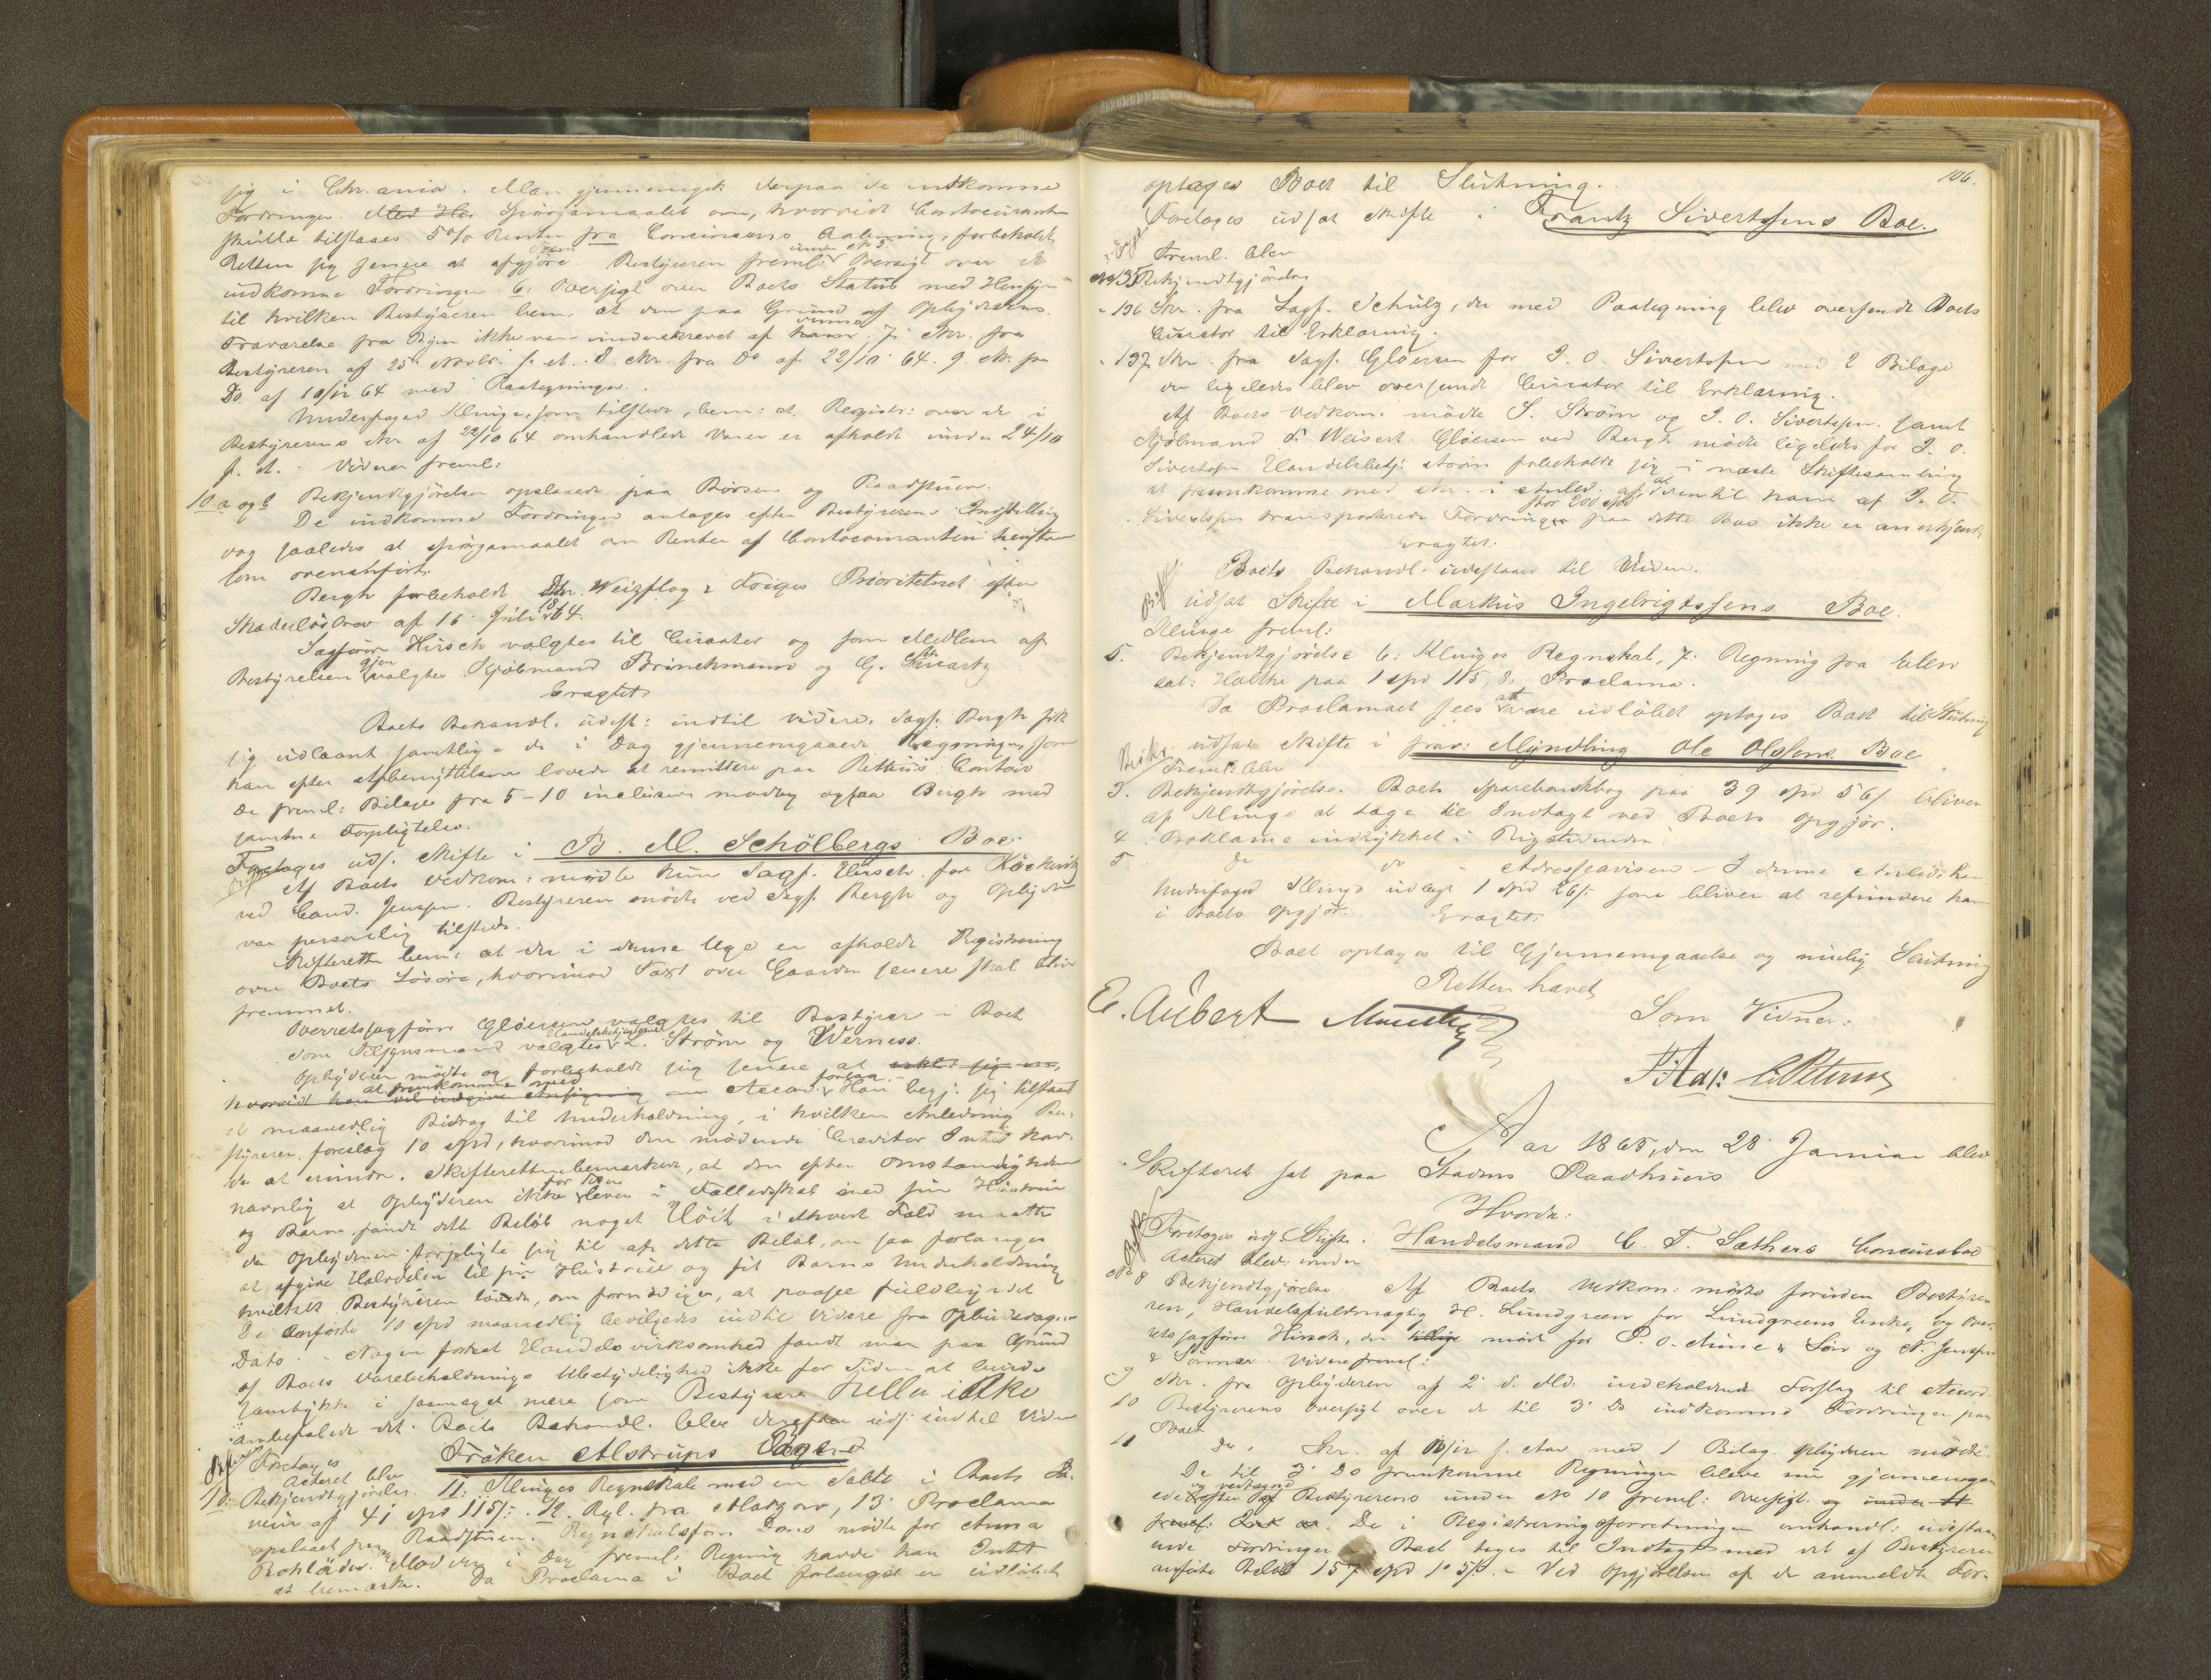 sig i Chr.ania. Man gjennemgik derpaa de indkomne
Fordringer. Med Hs. Spörgsmaalet om, hvorvidt Contocurant
skulde tilstaaes 5 % Renter fra Concursens Aabning, forbeholdt
Retten sig senere at afgjöre. Bestyreren freml: under No 5 Oversigt over de
indkomne Fordringer 6: Oversigt over Boets Status med Hensyn
til hvilken Bestyreren bem. at den paa Grund af Opbyderens
Fraværelse fra Byen ikke var underskrevet af denne. 7: Skr. fra
Bestyreren af 25de Novbr. f. A. 8 Skr. fra Do af 22/10 64. 9. Skr. fra
Do af 10/12 64 med Paategninger.
Underfoged Klinge, som tilstede, bem: at Registr: over de i
Bestyrerens Skr. af 22/10 64 omhandlede Varer er afholdt under 24/10
f. A. Videre freml:
10 a og b Bekjendtgjörelser opslaaede paa Börsen og Raadstuen.
De indkomne Fordringer antages efter Bestyrerens Indstilling
dog saaledes at Spörgsmaalet om Renter af Contocouranten henstaar
som ovenanfört.
Bergh forbeholdt Dhr. Weizflog & Prioritetsret efter
Skadeslösbrev af 16 Juli 1864.
Sagförer Hirsch valgtes til Curator og som Medlem af
Bestyrelsen valgtes Kjöbmand Brinchmann og G. Schwartz
Eragtet:
Boets Behandl. udst: indtil videre. Sagf. Bergh fik
sig udlaant samtlige de i Dag gjennemgaaede Regninger, som
han efter Afbenyttelsen lovede at remittere paa Rettens Contoir
De freml: Bilage fra 5-10 inclusive modtog ogsaa Bergh med
samme Forpligtelse.
Foretages uds. Skifte i B. M. Schölbergs Boe.
Af Boets Vedkom: mödte kun Sagf. Hirsch for
ved Cand. Jenssen. Bestyreren mödte ved Sagf. Bergh og Opbyderen
var personlig tilstede.
Skifteretten bem: at der i denne Uge er afholdt Registrering
over Boets Lösöre, hvorimod Taxt over Gaarden senere skal blive
fremmet.
Overretssagförer Glöersen valgtes til Bestyrer i Boet
som Tilsynsmænd valgtes Handelsbetjentene L. Ström og Werness.
Opbyderen mödte og forbeholdt sig senere at erkl. sig om,
hvorvidt han vil indgive Ansögning at fremkomme med Accordforslag. Han begj: sig tilstaaet
et maanedlig Bidrag til Underholdning, i hvilken Anledning Be-
styreren foreslog 10 Spd, hvorimod den mödende Creditor Intet hav-
de at erindre. Skifteretten bemærkede, at den efter Omstændigheder
navnlig at Opbyderen ikke for Tiden lever i Fællesskab med sin Hustrue
og Barn fandt dette Belöb noget Höit i Ahvert Fald maatte
da Opbyderen forpligte sig til af dette Belöb, om saa forlanges
at afgive Halvdelen til sin Hustrue og sit Barns Underholdning
hvilket Bestyreren lovede, om fornödiges, at paasee fuldbyrdet
De anförte 10 Spd maanedlig bevilgedes indtil videre fra Opbudsdagens
Dato. Nogen fortsat Handelsvirksomhed fandt man paa Grund
af Boets Varebeholdnings Ubetydelighed ikke for Tiden at burde
samtykke i saameget mere som Bestyreren heller ikke
anbefalede det. Boets Behandl. blev derefter uds: indtil Videre
Foretages Fröken Alstrups
Acteret blev
10: Bekjendtgjörelse. 11: Klinges Regnskab med en Saldo i Boets Fa-
veur af 41 Spd 115 s. 12. Rgl. fra 13 Proclama
opslaaet paa Raadstuen. Regnskabsförer Dons mödte for Anna
Mod den i Dag freml: Regning havde han Intet
at bemærke. Da Proclama i Boet forlængst er udlöbet
106.
optages Boet til Slutning.
Foretages udsat Skifte i Frantz Sivertssens Boe.
Freml. blev
No 135 Bekjendtgjörelse
" 136 Skr. fra Sagf. Schulz, der med Paategning blev oversendt Boets
Curator til Erklæring.
" 137 Skr. fra Sagf. Glöersen for J. O. Sivertssen med 2 Bilage
der ligeledes blev oversendt Curator til Erklæring.
Af Boets Vedkom: mödte S. Ström og J. O. Sivertssen samt
Kjöbmand F. Weisert. Glöersen ved Bergh mödte ligeledes for J. O.
Sivertssen. Handelsbetj: Ström forbeholdt sig i næste Skiftesamling
at fremkomme med Skr. i Anled. af, at den til ham af J. O.
Sivertssen transporterede Fordringer stor 200 Spd paa dette Boe ikke er anerkjendt.
Eragtet:
Boets Behandl. udestaaer til Videre.
udsat Skifte i Markus Ingebrigtssens Boe.
Klinge freml:
5. Bekjendtgjörelse 6: Klinges Regnskab, 7: Regning fra Elev
sal: Holthe paa 1 Spd 115, 8: Proclama.
Da Proclamaet sees at være udlöbet optages Boet til Slutning
udsat Skifte i frav: Myndling Ole Olssens Boe
Freml: blev
3. Bekjendtgjörelse. Boets Sparebankbog paa 39 Spd 56 s bliver
af Klinge at tage til Indtægt ved Boets Opgjör.
4. Proklama indrykket i Rigstidenden
5 Do Do " Adresseavisen - I denne Anled. har
Underfoged Klinge udlagt 1 Spd 26 s som bliver at refundere ham
i Boets Opgjör. Eragtet:
Boet optages til Gjennemgaaelse og mulig Slutning
Retten hævet
E. Aubert Som Vidner:
C Petersen
Aar 1865, den 28 Januar blev
Skifteret sat paa Stadens Raadhuus
Hvorda:
Foretoges uds. Skifte i Handelsmand C. T. Sæthers Concursboe
Acteret blev under
No 8 Bekjendtgjörelse Af Boets Vedkom: mödte foruden Bestyre-
ren, Handelsfuldmægtig H. Lundgreen for Lundgreens Enke, og Over-
retssagförer Hirsch, der tillige mödte for P. O. & Sön og N. Jenssen
& Sönner. Videre freml:
9 Skr. fra Opbyderen af 2 d. Md. indeholdende Forslag til Accord
10 Bestyrerens Oversigt over de til 3 Ds indkomne Fordringer paa
Boet
11 Do. Skr. af f. Aar med 1 Bilag. Opbyderen mödte.
De til 3 Ds fremkomne Regninger bleve nu gjennemgaa-
ede og vedtagne efter Bestyrerens under No 10 freml: Oversigt. og under 11
De i Registreringsforretningen omhandl: udestaa-
ende Fordringer Boet toges til Indtægt med det af Bestyreren
anförte Belöb 157 Spd 105 s. - Ved Opgjörelsen af de anmeldte For-